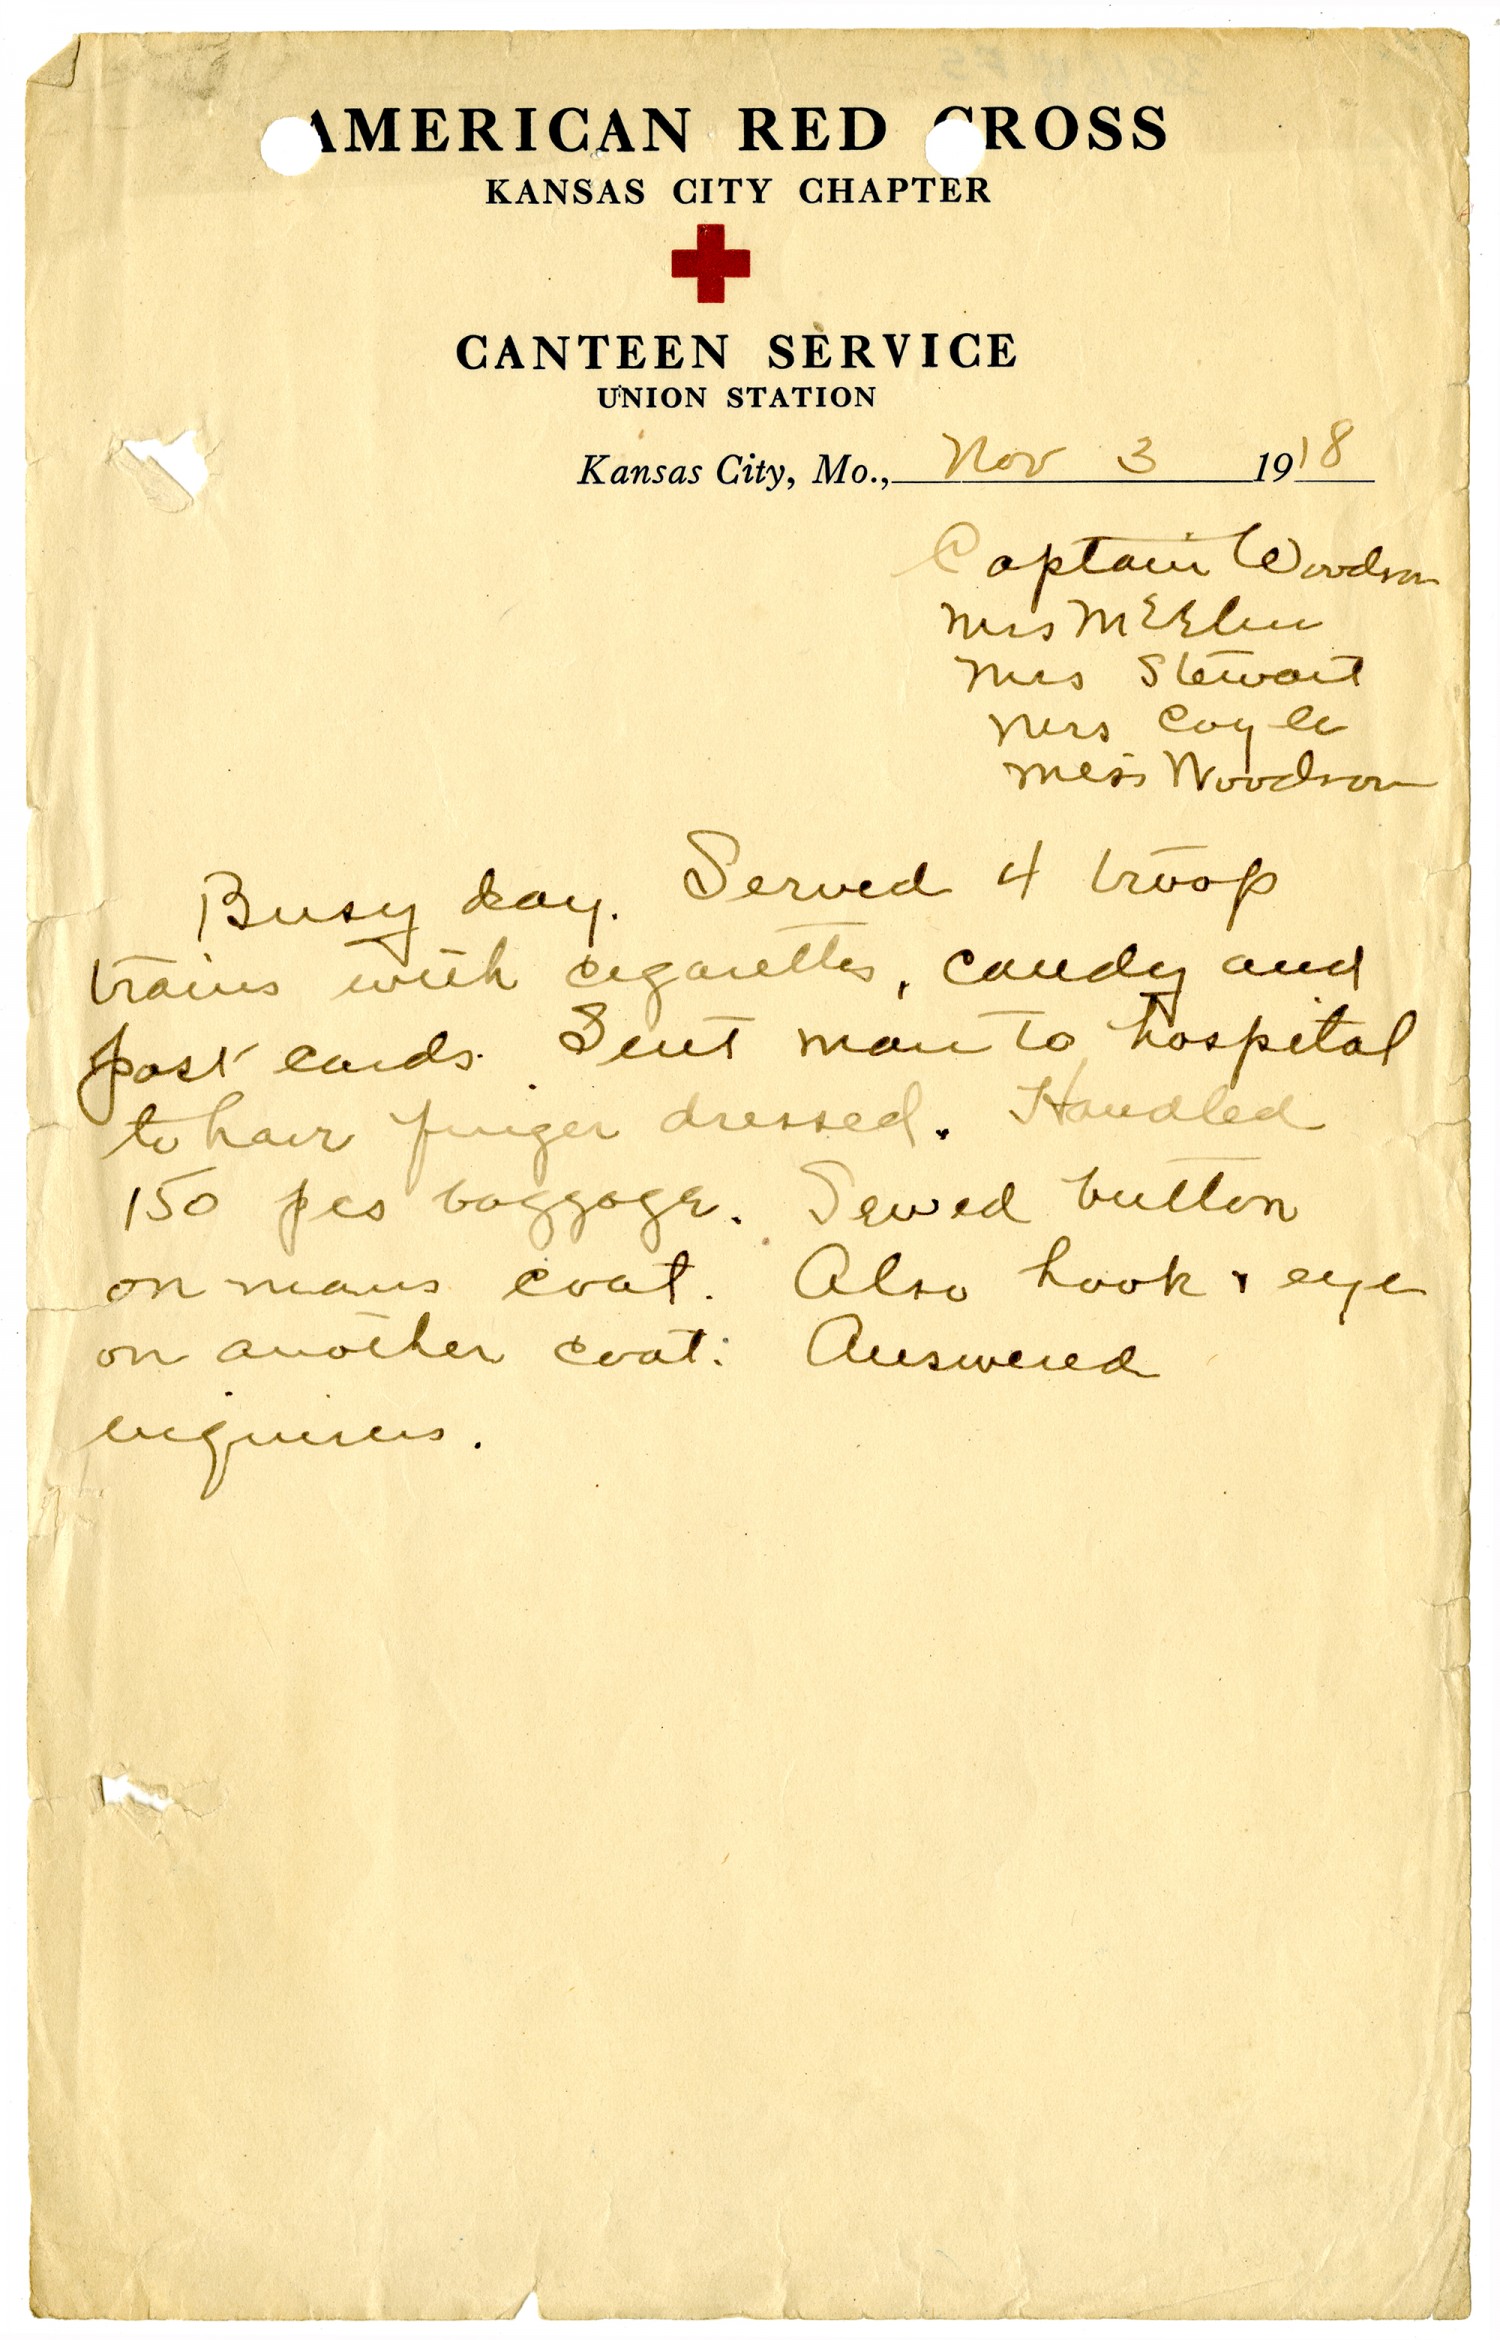 AMERICAN RED CROSS
KANSAS CITY CHAPTER
CANTEEN SERVICE
UNION STATION
Kansas City, Mo., Nov 3 1918
Captain Woodson
Mrs
Mrs Stewart
Mrs Coyle
Miss Woodson
Busy day. Served 4 troop
trains with cigarettes, candy and
post cards. Sent man to hospital
to have finger dressed. Handled
150 pcs baggage. Sewed button
on mans coat. Also hook & eye
on another coat. Answered
inquiries.